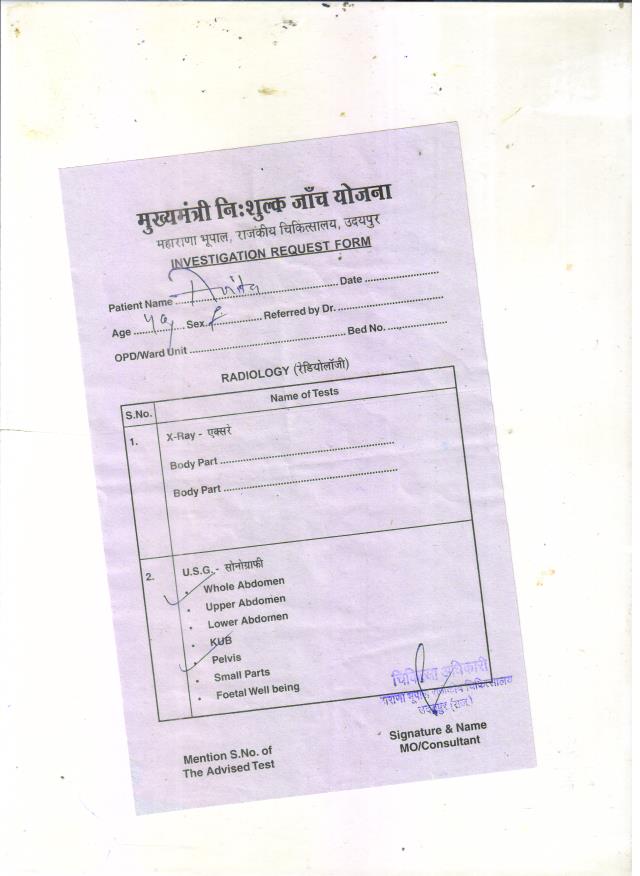 मुख्यमंत्री नि:शुल्क जाँच योजना
महाराणा भूपाल, राजकीय चिकित्सालय, उदयपुर
INVESTIGATION REQUEST FORM
Patient Name .............................. Date ....................
Age ............ Sex ............ Referred by Dr. ..............................
OPD/Ward Unit .............................. Bed No. ....................
RADIOLOGY (रेडियोलॉजी)
S.No. Name of Tests
1. X-Ray - एक्सरे
Body Part ..............................
Body Part ..............................
2. U.S.G. - सोनोग्राफी
• Whole Abdomen
• Upper Abdomen
• Lower Abdomen
• KUB
• Pelvis
• Small Parts
• Foetal Well being
चिकित्सा अधिकारी
भूपाल, राजकीय चिकित्सालय
उदयपुर (राज.)
Mention S.No. of
The Advised Test
Signature & Name
MO/Consultant